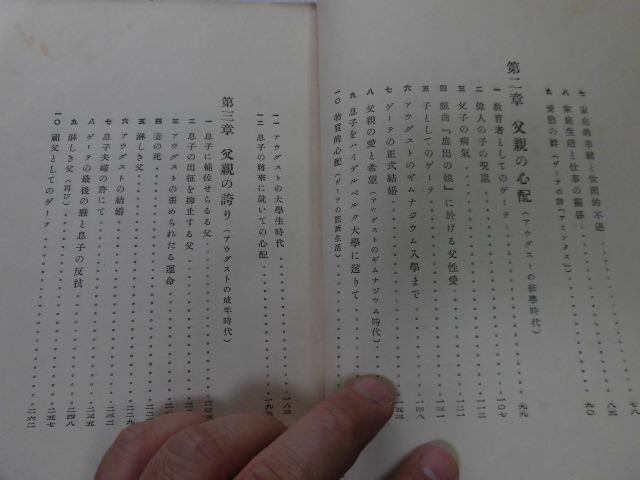 七 家庭的幸福と世間的不遇・・・七八
八 家庭生活と仕事の關係・・・八五
九 愛慾の絆（ゲーテの詩『アミンタス』）・・・九〇
第二章 父親の心配（アウグストの修學時代）・・・九九
一 教育者としてのゲーテ・・・一〇七
二 偉人の子の呪詛・・・一一二
三 父子の病氣・・・一二一
四 戲曲『庶出の娘』に於ける父性愛
五 子としてのゲーテ
六 アウグストのギムナジウム入學まで・・・一四八
七 ゲーテの正式結婚・・・一五三
八 父親の愛と希望（アウグストのギムナジウム時代）
九 息子をハイデルベルク大學に送りて
一〇 物質的心配（ゲーテの經濟生活）
一一 アウグストの大學生時代・・・一八三
一二 息子の將來に就いての心配・・・一九
第三章 父親の誇り（アウグストの成年時代）
一 息子に補佐せらるる父・・・二〇
二 息子の出征を抑止する父
三 アウグストの歪められたる運命
四 妻の死
五 淋しき父・・・二二九
六 アウグストの結婚
七 息子夫婦の許にて・・・二三二
八 ゲーテの最後の戀と息子の反抗・・・二三五
九 淋しき父（再び）・・・二四八
一〇 祖父としてのゲーテ・・・二五七
二六二